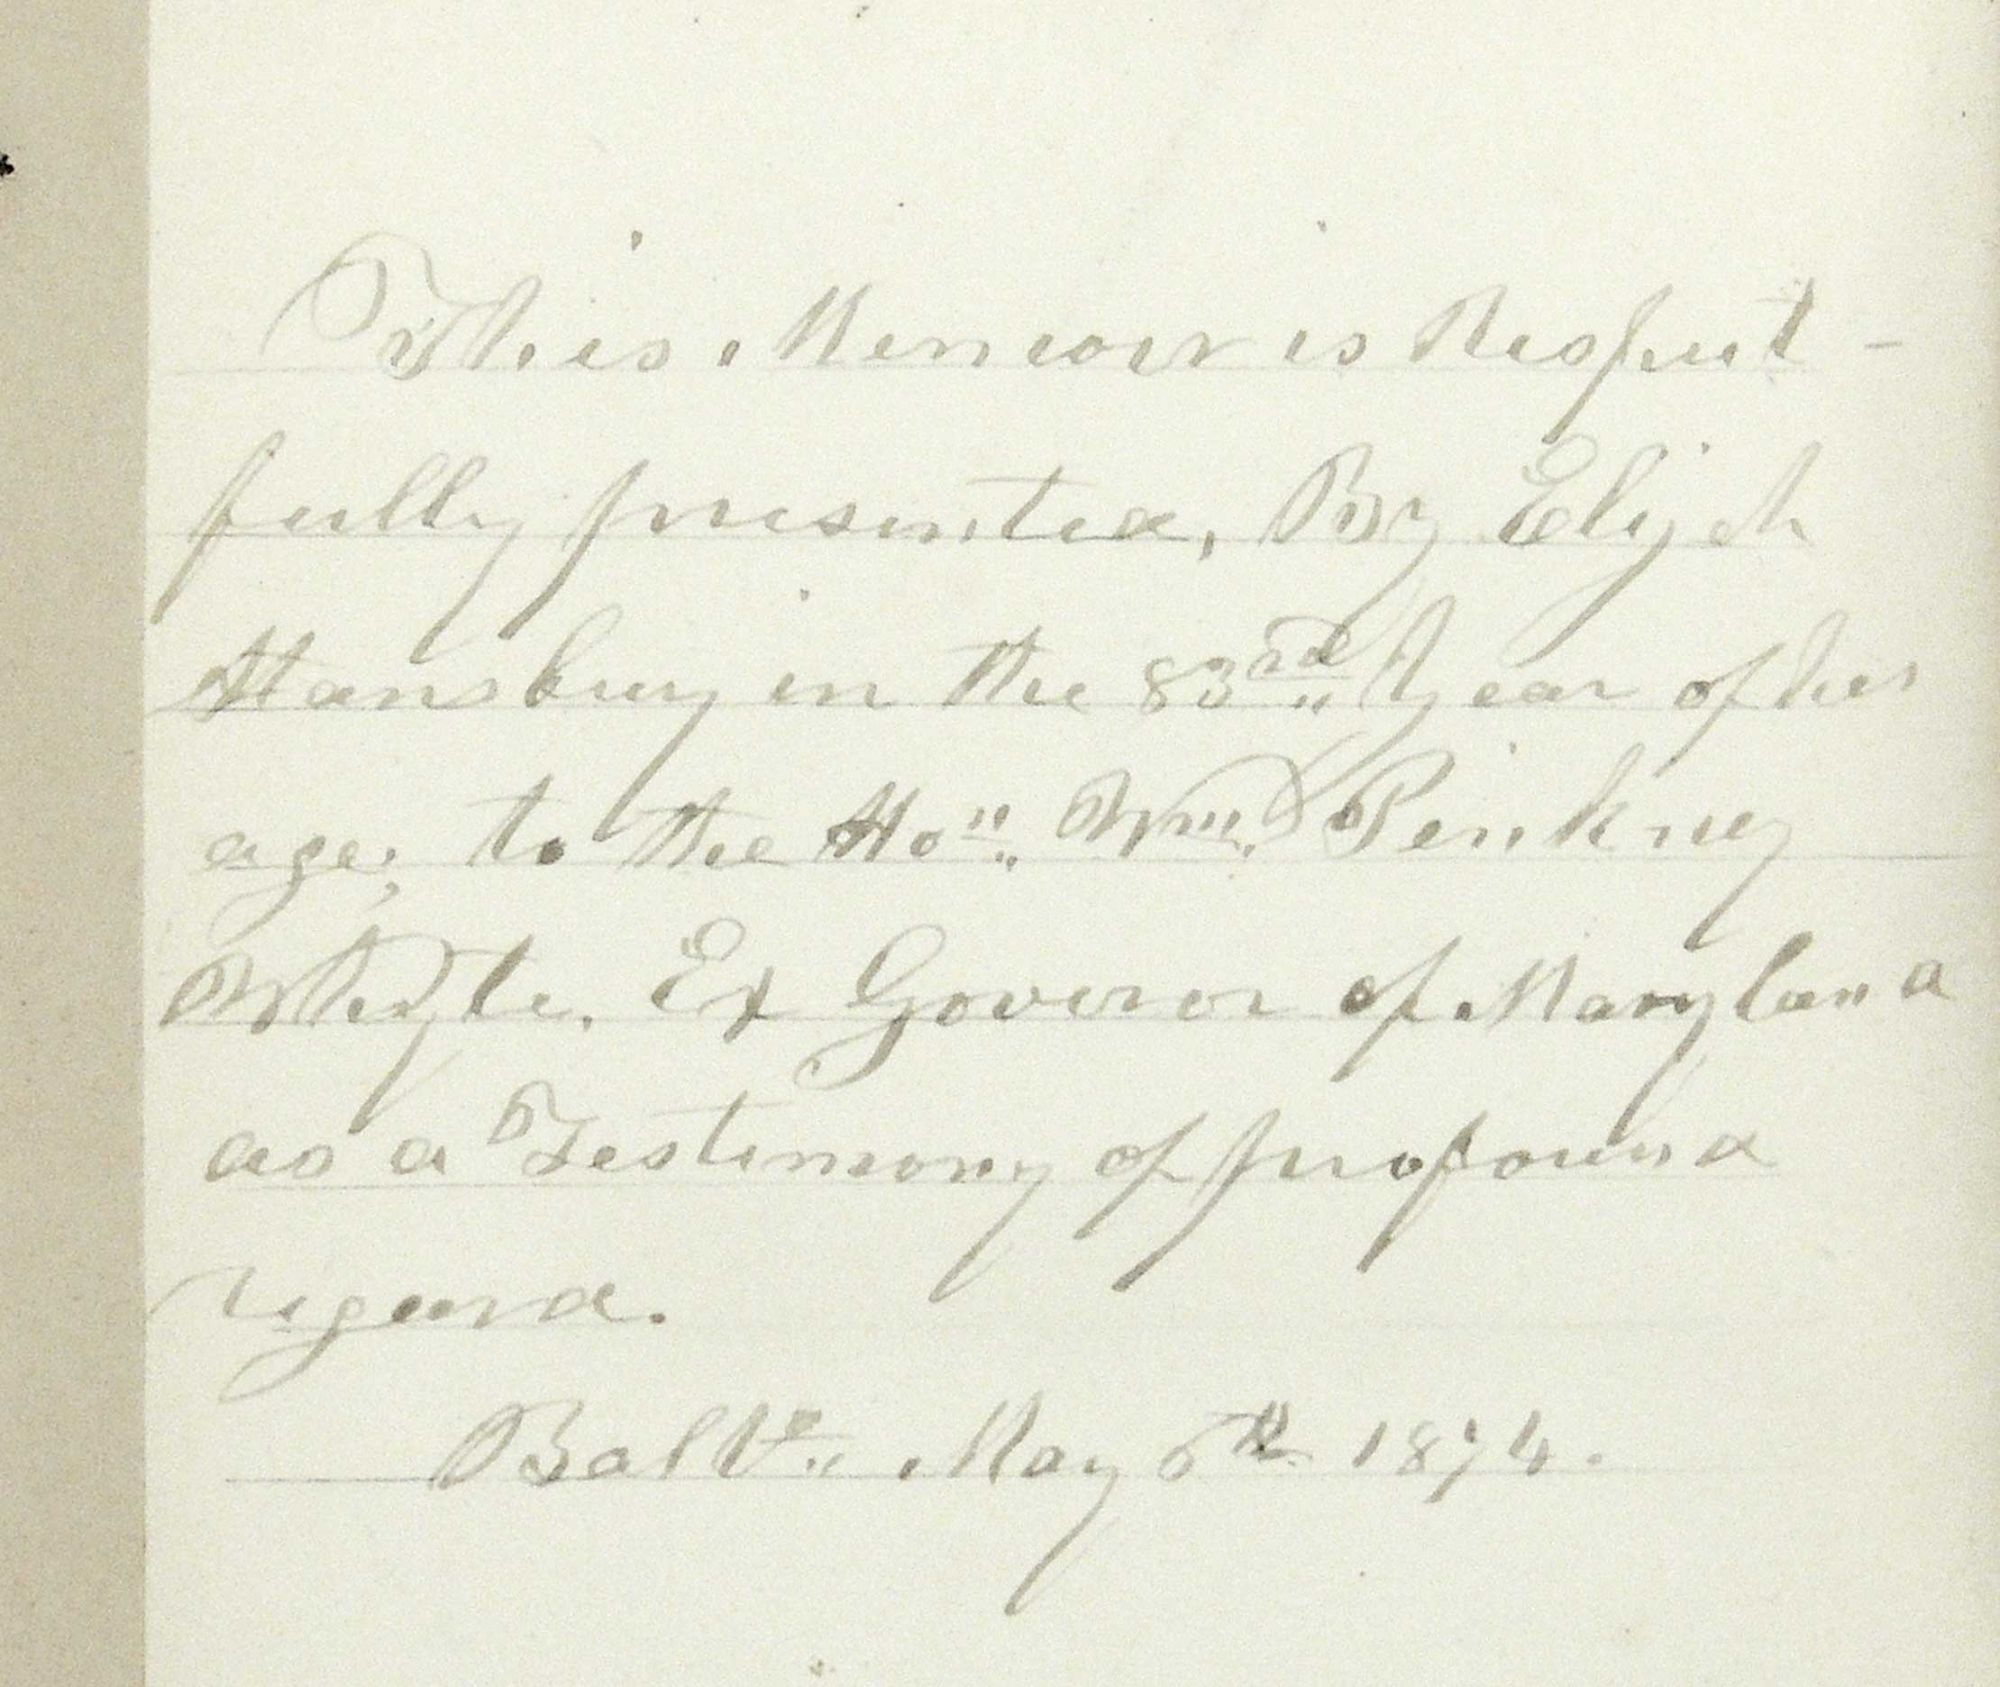 This Memoir is Respect-
fully presented, By Elijah
Stansbury in the 83rd Year of his
age; to the Hon. Wm. Pinkney
Whyte. Ex Goveror of Maryland
as a Testimony of profound
regard.
Balto. May 6th 1874.